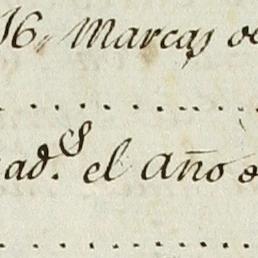 16, Marcas de
ad.s el año